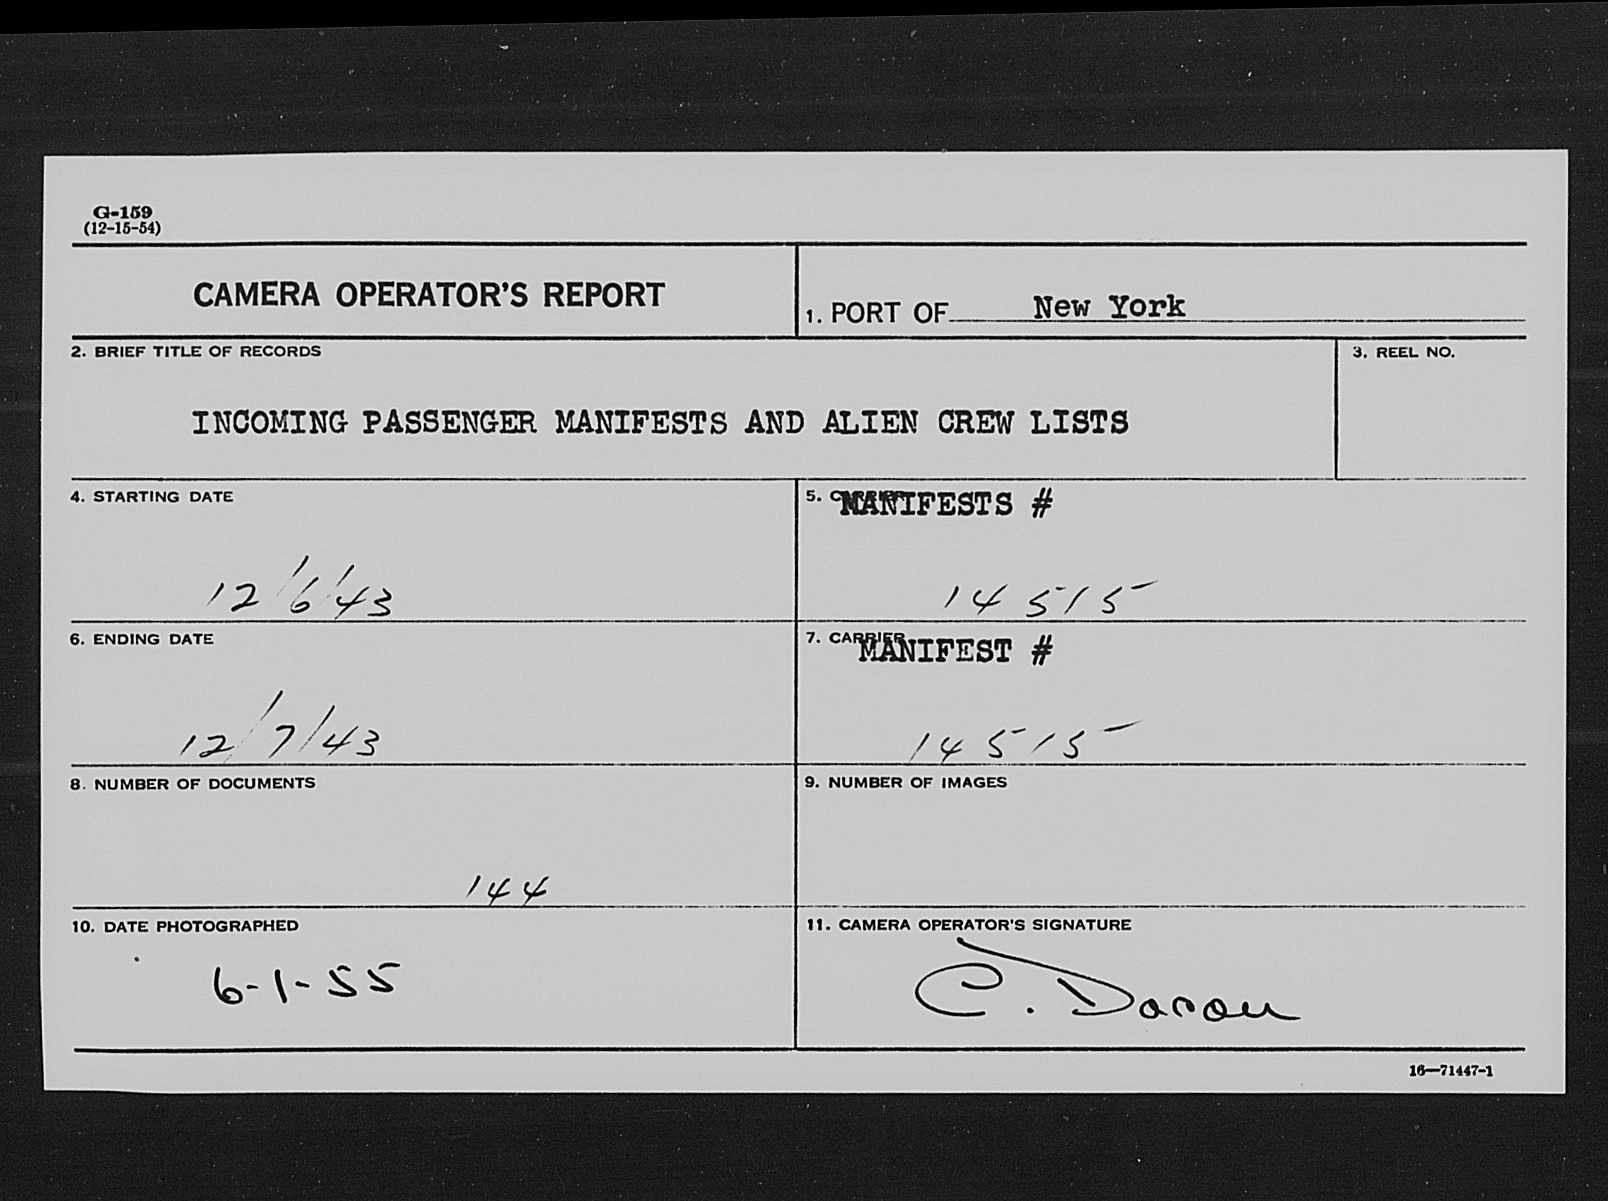 G-159
(12-15-54)
CAMERA OPERATOR'S REPORT
1. PORT OF New York
2. BRIEF TITLE OF RECORDS
3. REEL NO.
INCOMING PASSENGER MANIFESTS AND ALIEN CREW LISTS
4. STARTING DATE
5. CARRIER MANIFESTS #
12/6/43
14515
6. ENDING DATE
7. CARRIER MANIFEST #
12/7/43
14515
8. NUMBER OF DOCUMENTS
9. NUMBER OF IMAGES
144
10. DATE PHOTOGRAPHED
11. CAMERA OPERATOR'S SIGNATURE
6-1-55
C.
16—71447-1